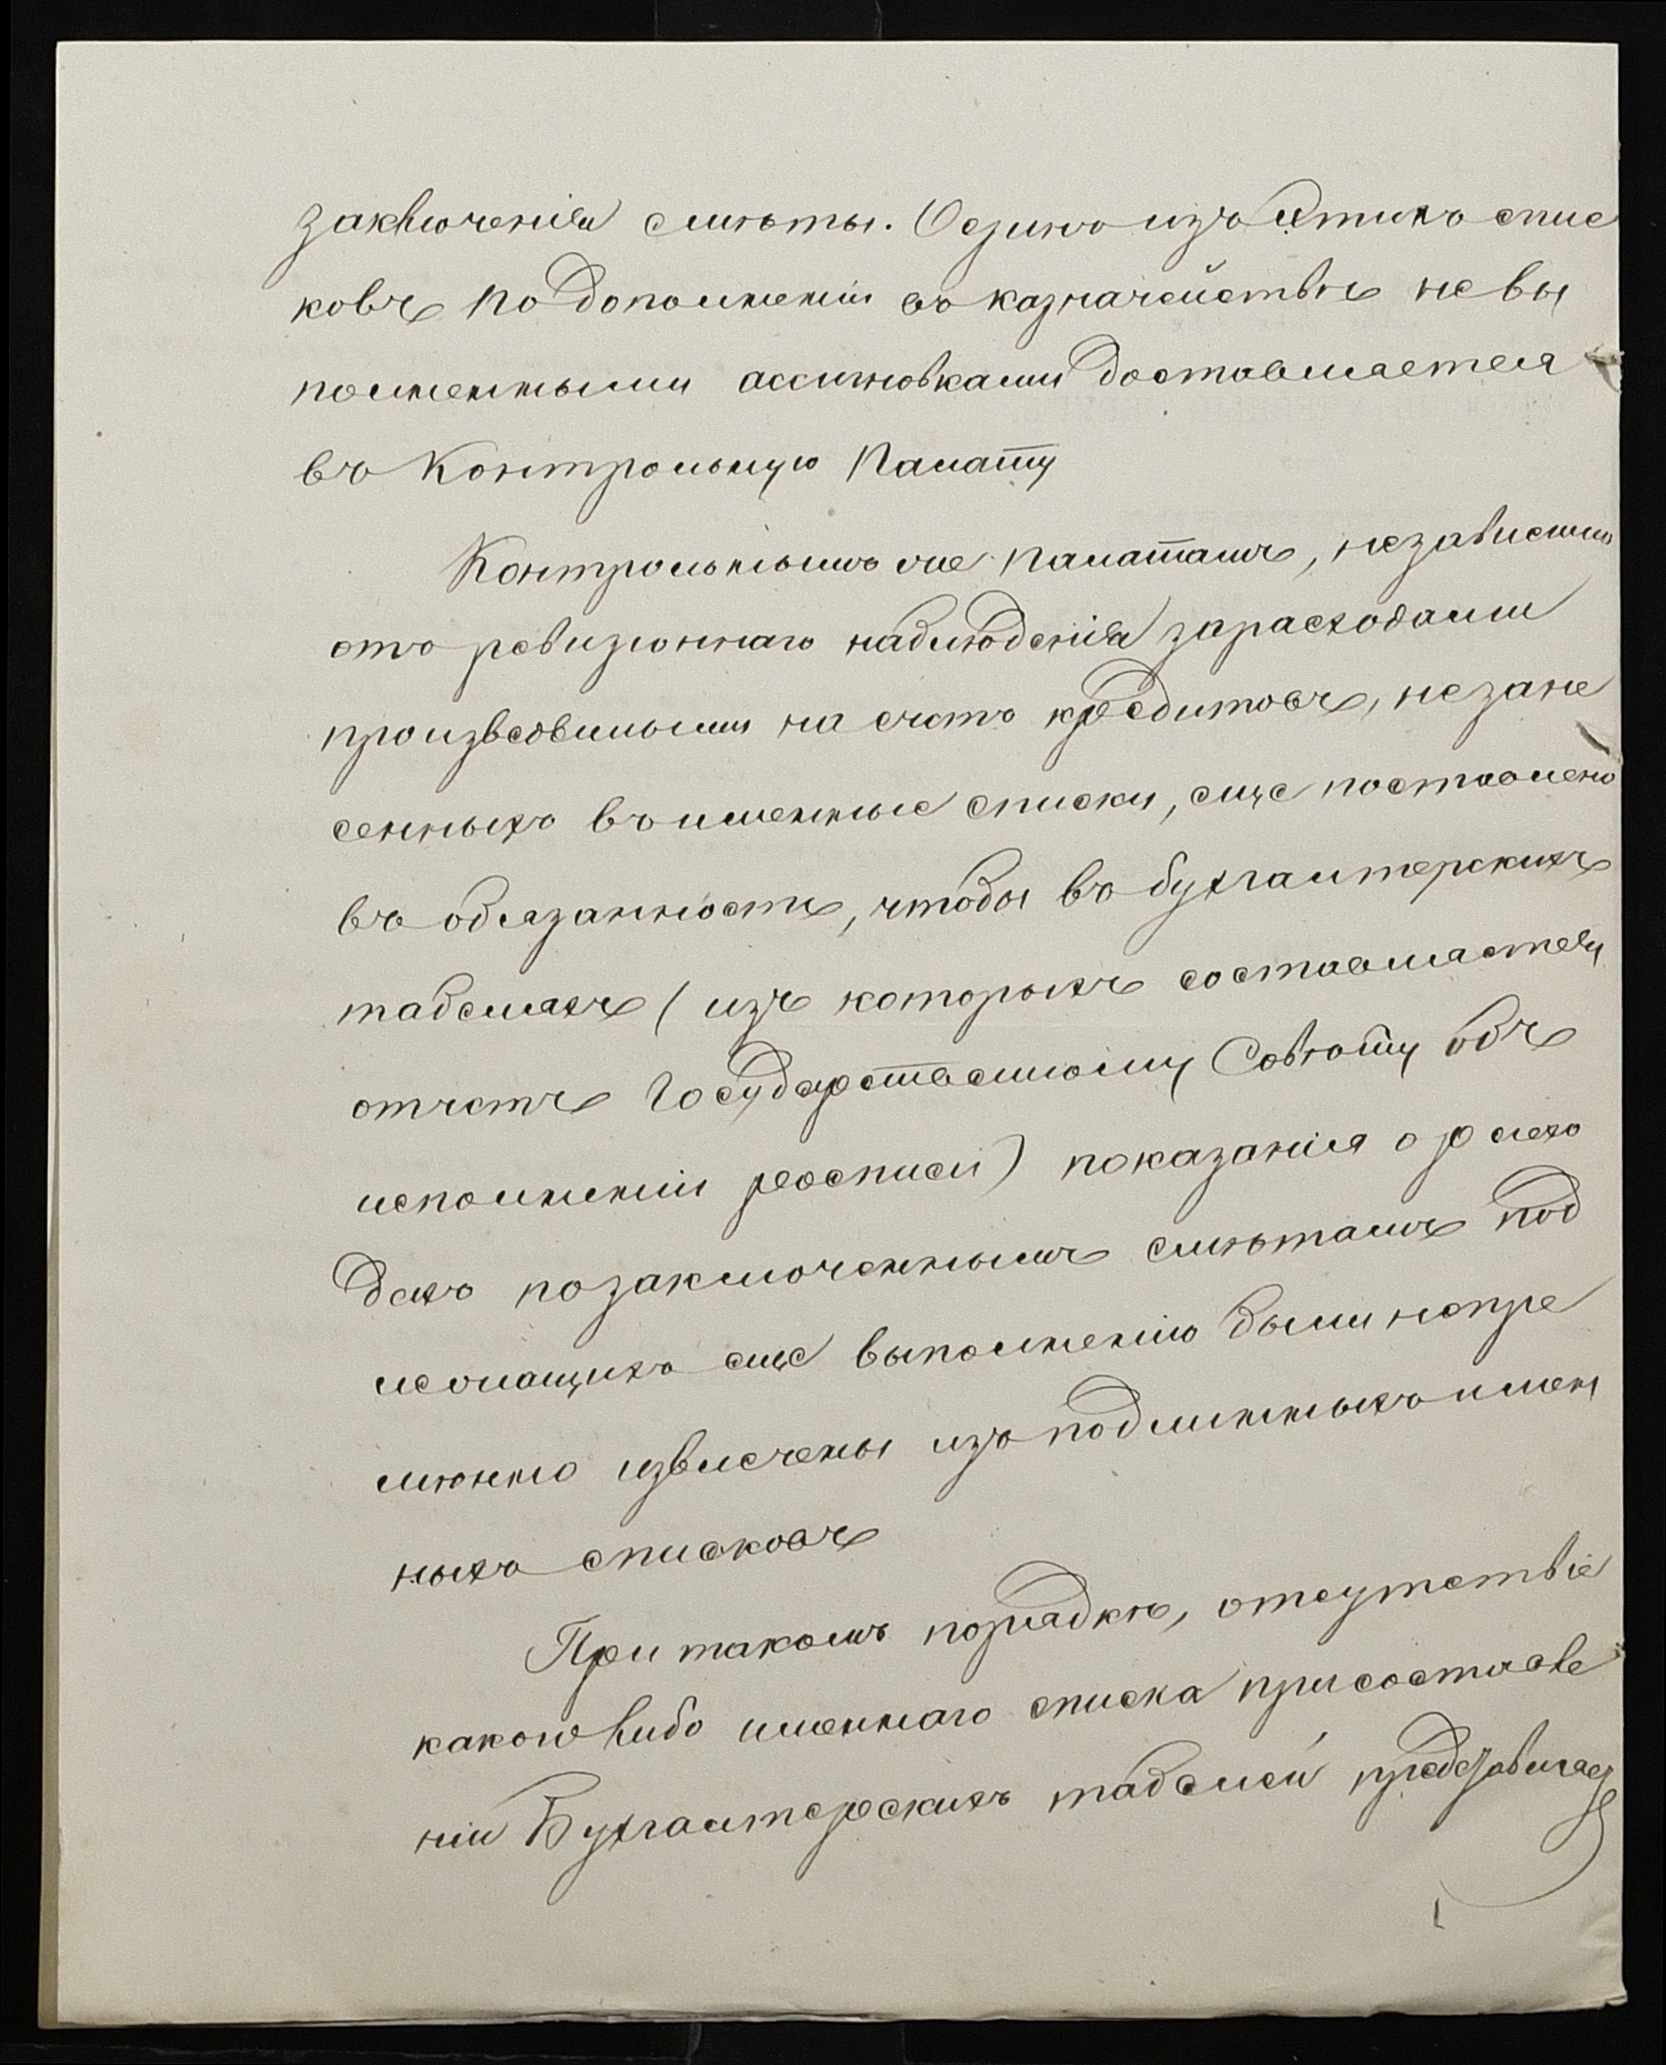 заключенія смѣты. Одинъ изъ этихъ спис
ковъ по дополненіи въ казначействѣ невы
полненными ассигновками доставляется
въ Контрольную Палату
Контрольнымъ же Палатамъ, независимо
отъ ревизіоннаго наблюденія зарасходами
произведенными на счетъ кредитовъ, незане
сенныхъ въименные списки, еще поставлено
въ обязанность, чтобы въ бухгалтерскихъ
табеляхъ (изъ которыхъ составляется
отчетъ Государственному Совѣту объ
исполненіи росписи) показанія о расхо
дахъ позаключеннымъ смѣтамъ под
лежащихъ еще выполненію были непре
мѣнно извлечены изъ подлинныхъ имен
ныхъ списковъ
При такомъ порядкѣ, отсутствіе
какого либо именнаго списка присоставле
ніи Бухгалтерскихъ табелей